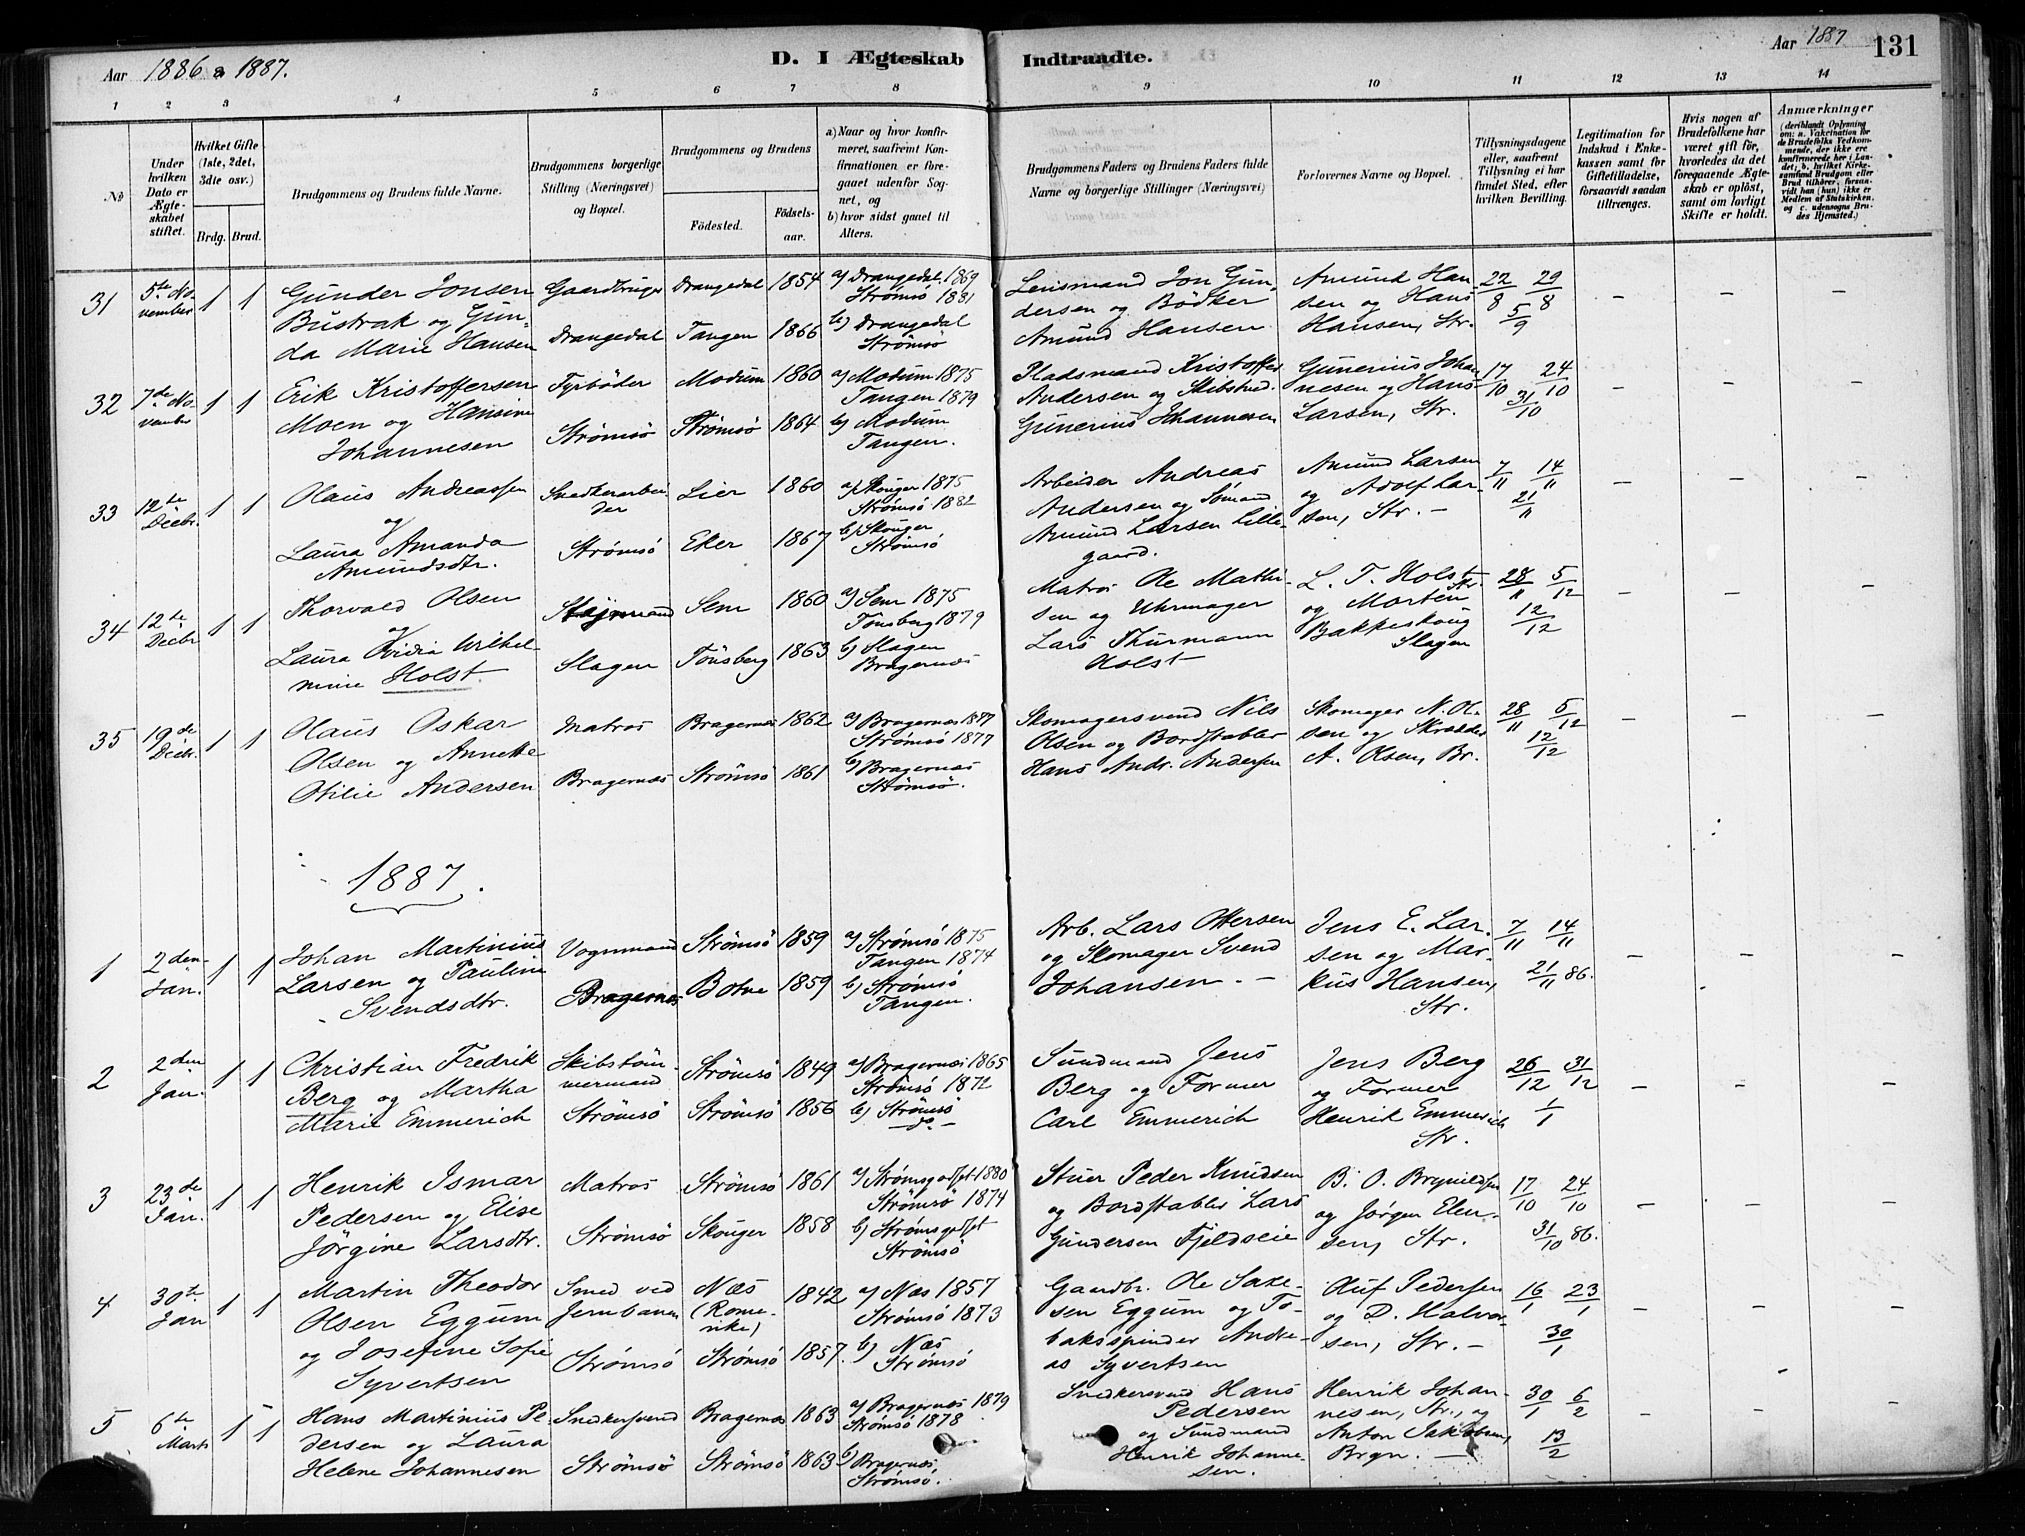 Aar 1886 & 1887.
D. I Ægteskab Indtraadte.
Aar 1887 131
1 2 3 4 5 6 7 8 8 9 10 11 12 13 14
No
Under hvilken Dato er Ægteskabet stiftet.
Hvilket Gifte (1ste, 2det, 3die osv.)
Brdg. Brud.
Brudgommens og Brudens fulde Navne.
Brudgommens borgerlige Stilling (Næringsvei) og Bopæl.
Brudgommens og Brudens
Födested. Födselsaar.
a) Naar og hvor konfirmeret, saafremt Konfirmationen er foregaaet udenfor Sognet, og
b) hvor sidst gaaet til Alters.
Brudgommens Faders og Brudens Faders fulde Navne og borgerlige Stillinger (Næringsvei)
Forlovernes Navne og Bopæl.
Tillysningsdagene eller, saafremt Tillysning ei har fundet Sted, efter hvilken Bevilling.
Legitimation for Indskud i Enkekassen samt for Giftetilladelse, forsaavidt saadan tiltrænges.
Hvis nogen af Brudefolkene har været gift för, hvorledes da det foregaaende Ægteskab er oplöst, samt om lovligt Skifte er holdt.
Anmærkninger (deriblandt Oplysning om: a. Vakcination for de Brudefolks Vedkommende, der ikke ere konfirmerede her i Landet; b. hvilket Kirkesamfund Brudgom eller Brud tilhörer, forsaavidt han (hun) ikke er Medlem af Statskirken, og c. udensogns Brudes Hjemsted.)
31 5te November 1 1 Gunder Jonsen Bustrak og Gunda Marie Hansen
Gaardbruger Drangedal
Drangedal 1854
Tangen 1866
a) Drangedal 1869 Strömsö 1881
b) Drangedal Strömsö
Lensmand Jon Gundersen og Bödker Amund Hansen
Amund Hansen og Hans Hansen, Str.
22/8 29/8 5/9 – – –
32 7de November 1 1 Erik Kristoffersen Moen og Hansine Johannesen
Fyrböder Strömsö
Modum 1860
Strömsö 1864
a) Modum 1875 Tangen 1879
b) Modum Tangen.
Pladsmand Kristoffer Andersen og Skibstmd. Gunerius Johannesen
Gunerius Johannesen og Hans Larsen, Str.
17/10 24/10 31/10 – – –
33 12te Decbr. 1 1 Olaus Andreassen og Laura Amanda Amundsdtr.
Snedkerarbeider Strömsö
Lier 1860
Eker 1867
a) Skouger 1875 Strömsö 1882
b) Skouger Strömsö
Arbeider Andreas Andersen og Sömand Amund Larsen Lillegaard.
Amund Larsen og Adolf Larsen, Str. –
7/11 14/11 21/11 – – –
34 12te Decbr 1 1 Thorvald Olsen og Laura Ovidia Wilhelmine Holst
Slagen
Sem 1860
Tönsberg 1863
a) Sem 1875 Tönsberg 1879
b) Slagen Bragernæs
Matros Ole Mathisen og Uhrmager Lars Thurmann Holst
L. T. Holst Str. og Morten Bakkeskoug Slagen
28/11 5/12 12/12 – – –
35 19de Decbr. 1 1 Olaus Oskar Olsen og Annette Otilie Andersen
Matros Bragernæs
Bragernæs 1862
Strömsö 1861
a) Bragernæs 1877 Strömsö 1877
b) Bragernæs Strömsö.
Skomagersvend Nils Olsen og Bordstabler Hans Andr. Andersen
Skomager N. Olsen og Skrædder A. Olsen, Br.
28/11 5/12 12/12 – – –
1887.
1 2den Jan. 1 1 Johan Martinius Larsen og Pauline Svendsdtr.
Vognmand Bragernæs
Strömsö 1859
Botne 1859
a) Strömsö 1875 Tangen 1874
b) Strömsö Tangen.
Arb. Lars Ottersen og Skomager Svend Johansen. –
Jens E. Larsen og Markus Hansen, Str.
7/11 14/11 21/11 86. – – –
2 2den Jan. 1 1 Christian Fredrik Berg og Martha Marie Emmerich
Skibstömmermand Strömsö
Strömsö 1849
Strömsö 1856
a) Bragernæs 1865 Strömsö 1872
b) Strömsö do. –
Sundmand Jens Berg og Former Carl Emmerich
Jens Berg og Former Henrik Emmerich Str.
26/12 31/12 1/1 – – –
3 23de Jan. 1 1 Henrik Ismar Pedersen og Elise Jörgine Larsdtr.
Matros Strömsö
Strömsö 1861
Skouger 1858
a) Strömsgodset 1880 Strömsö 1874
b) Strömsgodset Strömsö
Stuer Peder Knudsen og Bordstabler Lars Gundersen Fjeldseie
B. O. Brynildsen og Jörgen Elensen, Str.
17/10 24/10 31/10 86. – – –
4 30te Jan 1 1 Martin Theodor Olsen Eggum og Josefine Sofie Syvertsen
Smed ved Jernbanen Strömsö
Næs (Romerike) 1842
Strömsö 1857.
a) Næs 1857 Strömsö 1873
b) Næs Strömsö
Gaardbr. Ole Saxesen Eggum og Tobaksspinder Andreas Syvertsen
Oluf Pedersen og D. Halvorsen, Str. –
16/1 23/1 30/1 – – –
5 6te Marts 1 1 Hans Martinius Pedersen og Laura Helene Johannesen
Snedkersvend Strömsö
Bragernæs 1863
Strömsö 1863
a) Bragernæs 1879 Strömsö 1878
b) Bragernæs Strömsö.
Snedkersvend Hans Pedersen og Sundmand Henrik Johannesen.
Henrik Johannesen, Str., og Anton Jakobsen, Brgn. –
30/1 6/2 13/2 – – –